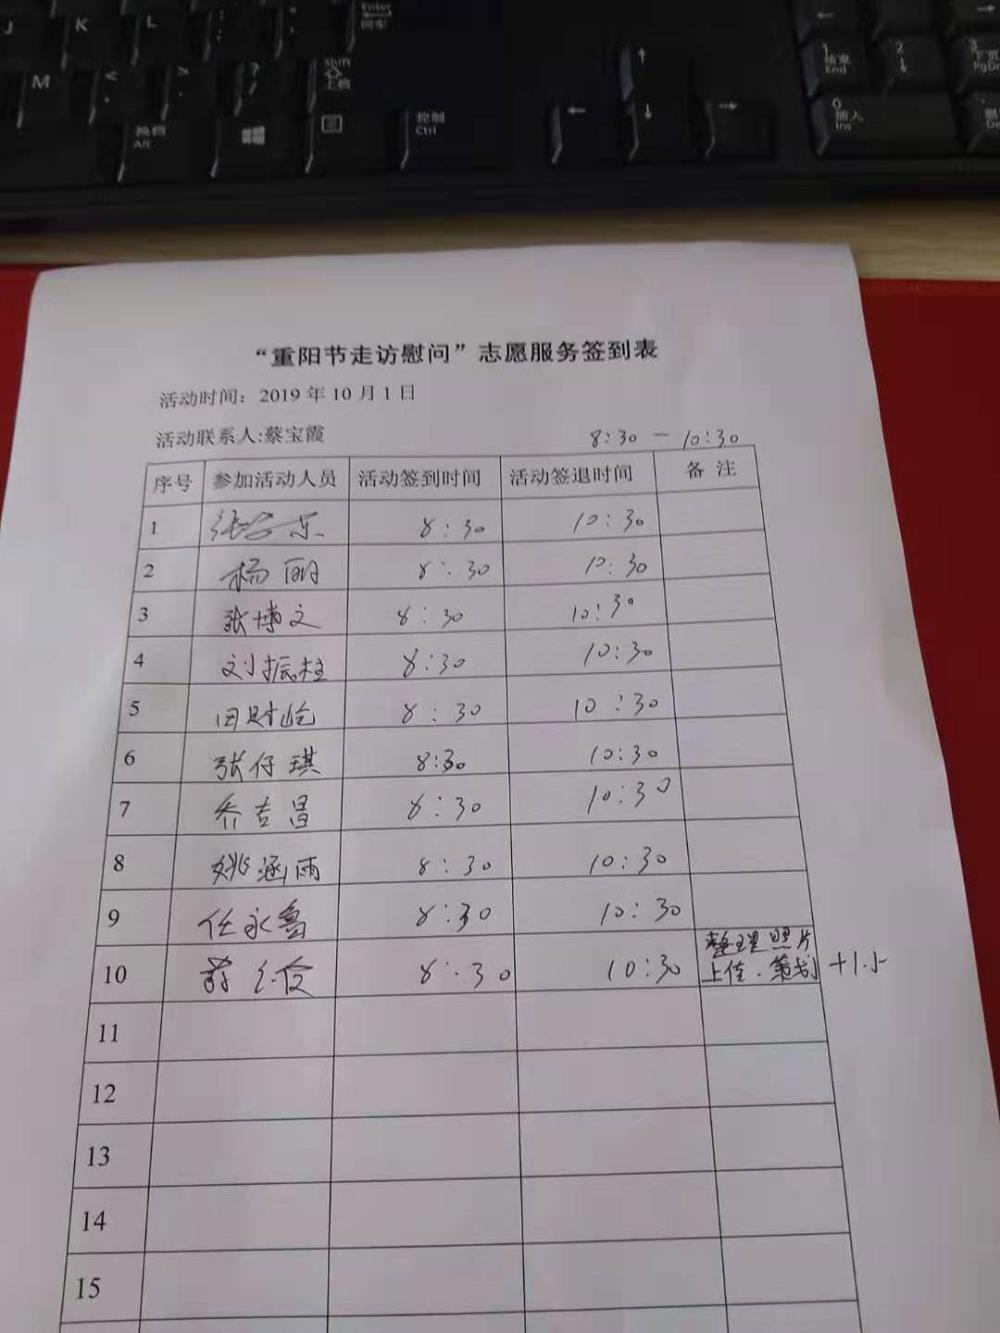 J
K
L
Enter
回车
M
<
,
>
.
?
/
shift
上档
换档
Alt
控制
Ctrl
1
结束
End
2
3
PgDn
0
插入
Ins
“重阳节走访慰问”志愿服务签到表
活动时间：2019 年 10 月 1 日
活动联系人:蔡宝霞
8:30 — 10:30
序号 参加活动人员 活动签到时间 活动签退时间 备 注
1 8:30 10:30
2 杨丽 8:30 10:30
3 张博文 8:30 10:30
4 刘振柱 8:30 10:30
5 8:30 10:30
6 张仔琪 8:30 10:30
7 乔吉昌 8:30 10:30
8 姚涵雨 8:30 10:30
9 任永鲁 8:30 10:30
10 8:30 10:30 整理照片
上传.策划 +1小
11
12
13
14
15